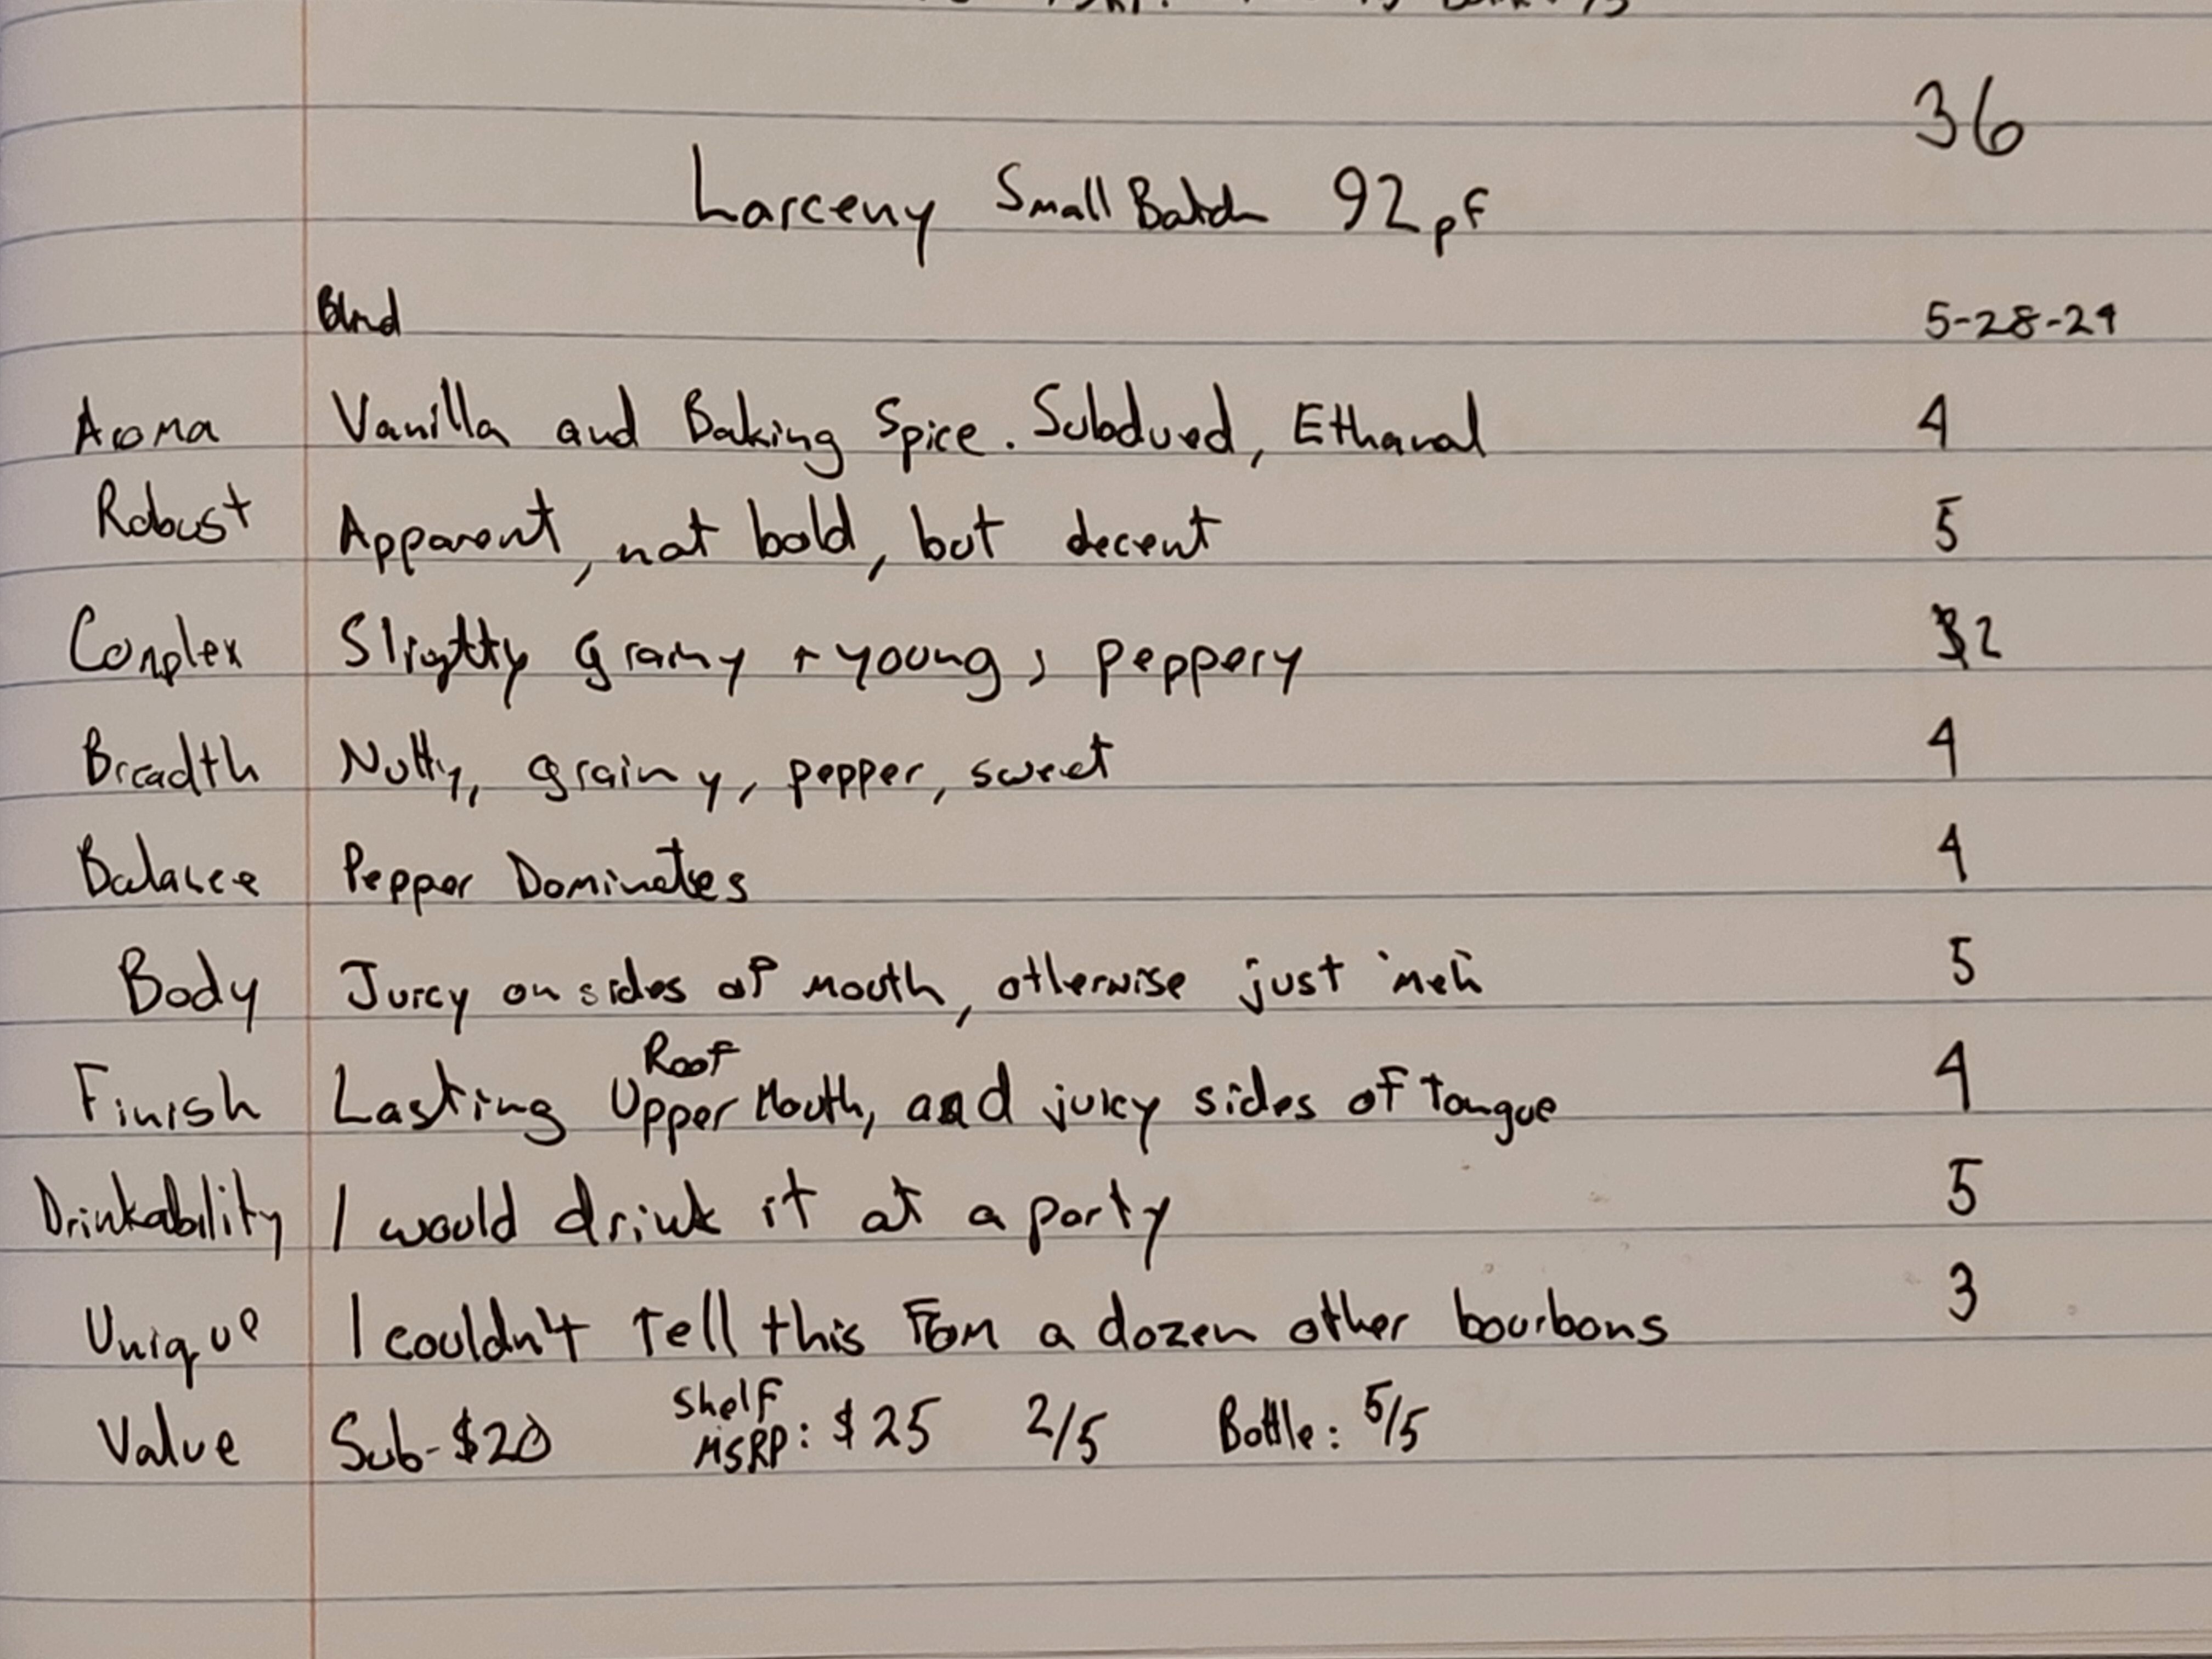 36
Larceny Small Batch 92 pf
Blind 5-28-24
Aroma Vanilla and Baking Spice. Subdued, Ethanal 4
Robust Apparent, not bold, but decent 5
Complex Slightly grainy + young, peppery 2
Breadth Nutty, grainy, pepper, sweet 4
Balance Pepper Dominates 4
Body Juicy on sides of mouth, otherwise just 'meh' 5
Roof
Finish Lasting Upper Mouth, and juicy sides of Tongue 4
Drinkability I would drink it at a party 5
Unique I couldn't tell this from a dozen other bourbons 3
Shelf
Value Sub-$20 MSRP: $25 2/5 Bottle: 5/5